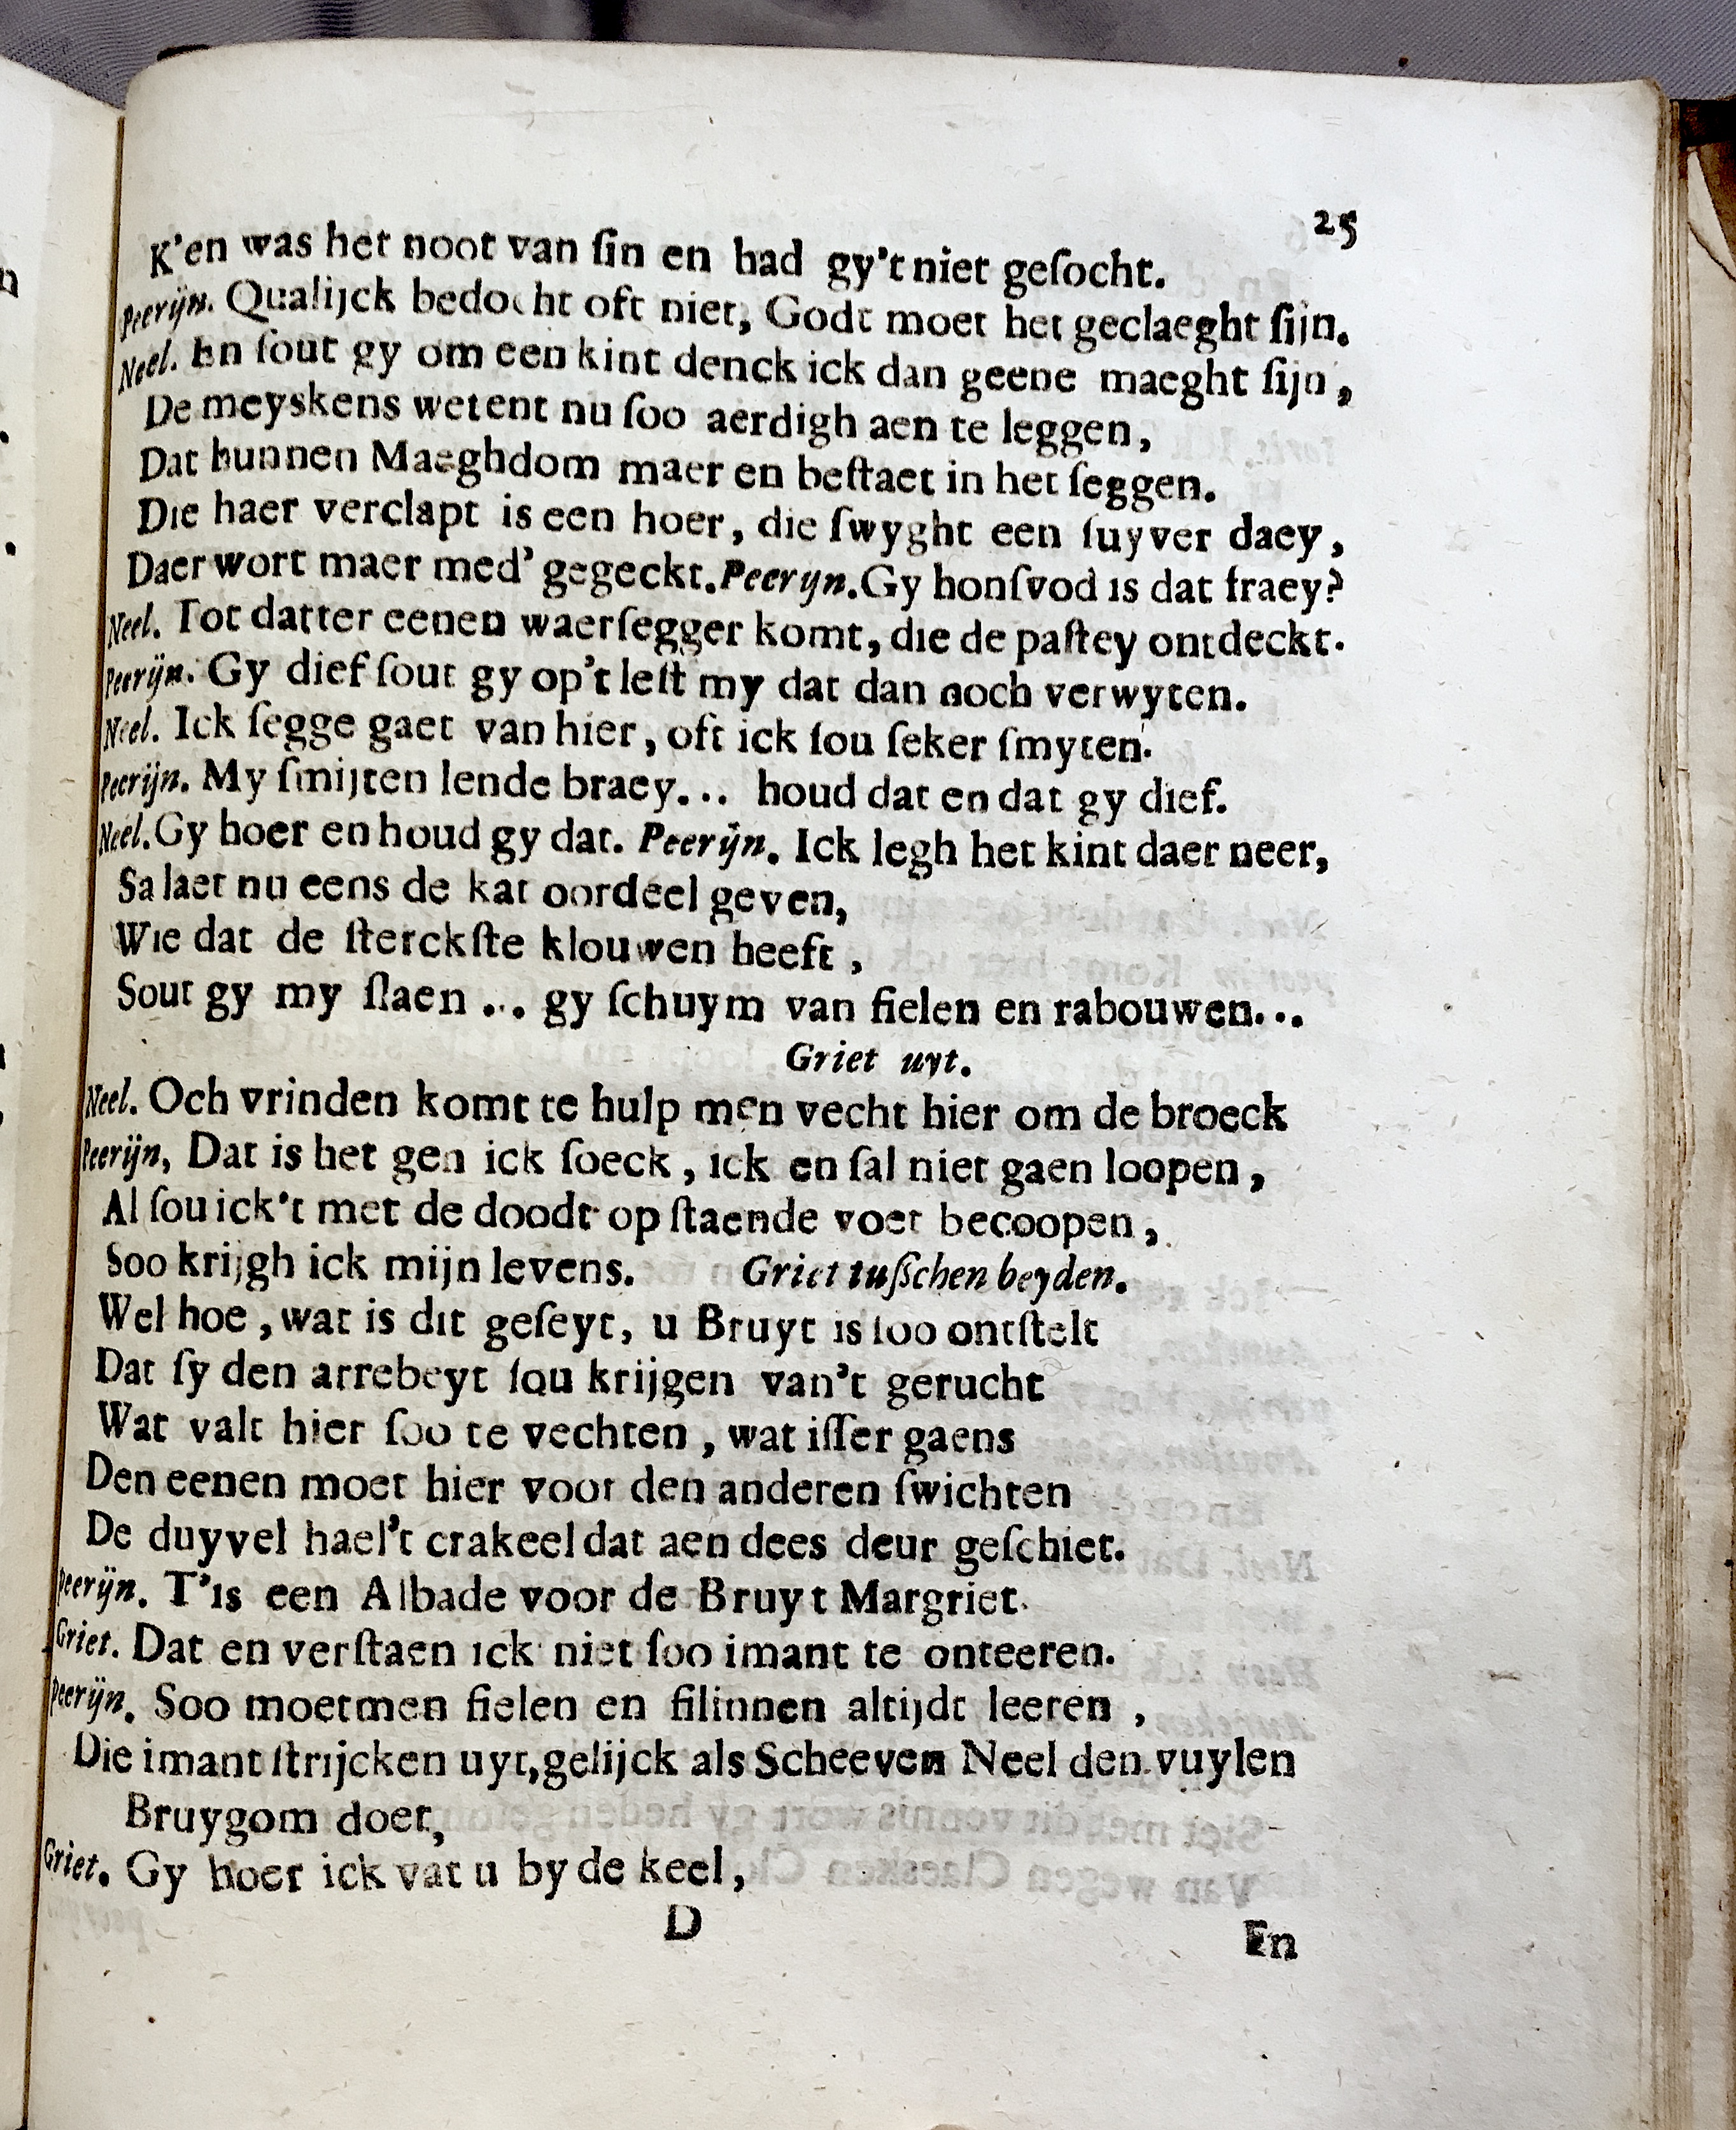 25
K'en was het noot van ſin en had gy't niet geſocht.
Peerijn. Qualijck bedocht oft niet, Godt moet het geclaeght ſijn.
Neel. En ſout gy om een kint denck ick dan geene maeght ſijn,
De meyskens wetent nu ſoo aerdigh aen te leggen,
Dat hunnen Maeghdom maer en beſtaet in het ſeggen.
Die haer verclapt is een hoer, die ſwyght een ſuyver daey,
Daer wort maer med' gegeckt. Peerijn. Gy honſvod is dat fraey?
Neel. Tot datter eenen waerſegger komt, die de paſtey ontdeckt.
Peerijn. Gy dief ſout gy op't leſt my dat dan noch verwyten.
Neel. Ick ſegge gaet van hier, oft ick ſou ſeker ſmyten.
Peerijn. My ſmijten lende braey... houd dat en dat gy dief.
Neel. Gy hoer en houd gy dat. Peerijn. Ick legh het kint daer neer,
Sa laet nu eens de kat oordeel geven,
Wie dat de ſterckſte klouwen heeft,
Sout gy my ſlaen ... gy ſchuym van fielen en rabouwen...
Griet uyt.
Neel. Och vrinden komt te hulp men vecht hier om de broeck
Peerijn, Dat is het gen ick ſoeck, ick en ſal niet gaen loopen,
Al ſou ick't met de doodt op ſtaende voet becoopen,
Soo krijgh ick mijn levens. Griet tuſſchen beyden.
Wel hoe, wat is dit geſeyt, u Bruyt is ſoo ontſtelt
Dat ſy den arrebeyt ſou krijgen van't gerucht
Wat valt hier ſoo te vechten, wat iſſer gaens
Den eenen moet hier voor den anderen ſwichten
De duyvel hael't crakeel dat aen dees deur geſchiet.
Peerijn. T'is een Albade voor de Bruyt Margriet.
Griet. Dat en verſtaen ick niet ſoo imant te onteeren.
Peerijn. Soo moetmen fielen en filinnen altijdt leeren,
Die imant ſtrijcken uyt, gelijck als Scheeven Neel den vuylen
Bruygom doet,
Griet. Gy hoer ick vat u by de keel,
D En